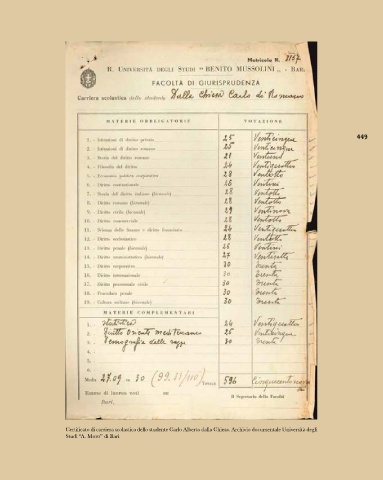 Matricola N. 2157
R. Università degli Studi "BENITO MUSSOLINI" - BARI
FACOLTÀ DI GIURISPRUDENZA
Carriera scolastica dello studente Dalla Chiesa Carlo di Romano
449
MATERIE OBBLIGATORIE VOTAZIONE
1. - Istituzioni di diritto privato 25 Venticinque
2. - Istituzioni di diritto romano 25 Venticinque
3. - Storia del diritto romano 21 Ventuno
4. - Filosofia del diritto 24 Ventiquattro
5. - Economia politica corporativa 28 Ventotto
6. - Diritto costituzionale
7. - Storia del diritto italiano (biennale) 28 Ventotto
8. - Diritto romano (biennale) 28 Ventotto
9. - Diritto civile (biennale) 29 Ventinove
10. - Diritto commerciale 28 Ventotto
11. - Scienza delle finanze e diritto finanziario 24 Ventiquattro
12. - Diritto ecclesiastico 28 Ventotto
13. - Diritto penale (biennale)
14. - Diritto amministrativo (biennale) 27 Ventisette
15. - Diritto corporativo 30 Trenta
16. - Diritto internazionale 30 Trenta
17. - Diritto processuale civile 30 Trenta
18. - Procedura penale 30 Trenta
19. - Cultura militare (biennale) 30 Trenta
MATERIE COMPLEMENTARI
1. - Statistica 24 Ventiquattro
2. - Diritto Oriente mediterraneo 25 Venticinque
3. - Demografia delle razze 30 Trenta
4. -
5. -
6. -
Media 27.09 su 30 (99.33/110) TOTALE 596
Esame di laurea voti su
Bari, Il Segretario della Facoltà
Certificato di carriera scolastica dello studente Carlo Alberto dalla Chiesa. Archivio documentale Università degli
Studi "A. Moro" di Bari